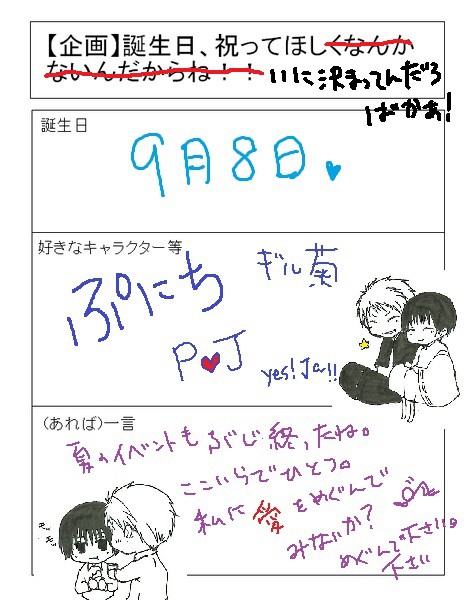 【企画】誕生日、祝ってほしくなんか
ないんだからね！！いいに決まってんだろ
ばかぁ!
誕生日
9月8日
好きなキャラクター等
ぷにち
ギル菊
P♥J
yes! Ja!!
(あれば)一言
夏のイベントもぶじ終ったね。
ここいらでひとつ。
私に愛をめぐんで
みないか?
めぐんで下さい。
下さい